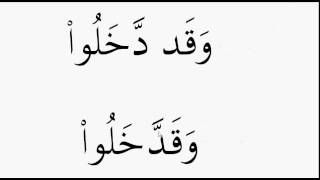 وَقَد دَّخَلُوا۟
وَقَدَّخَلُوا۟